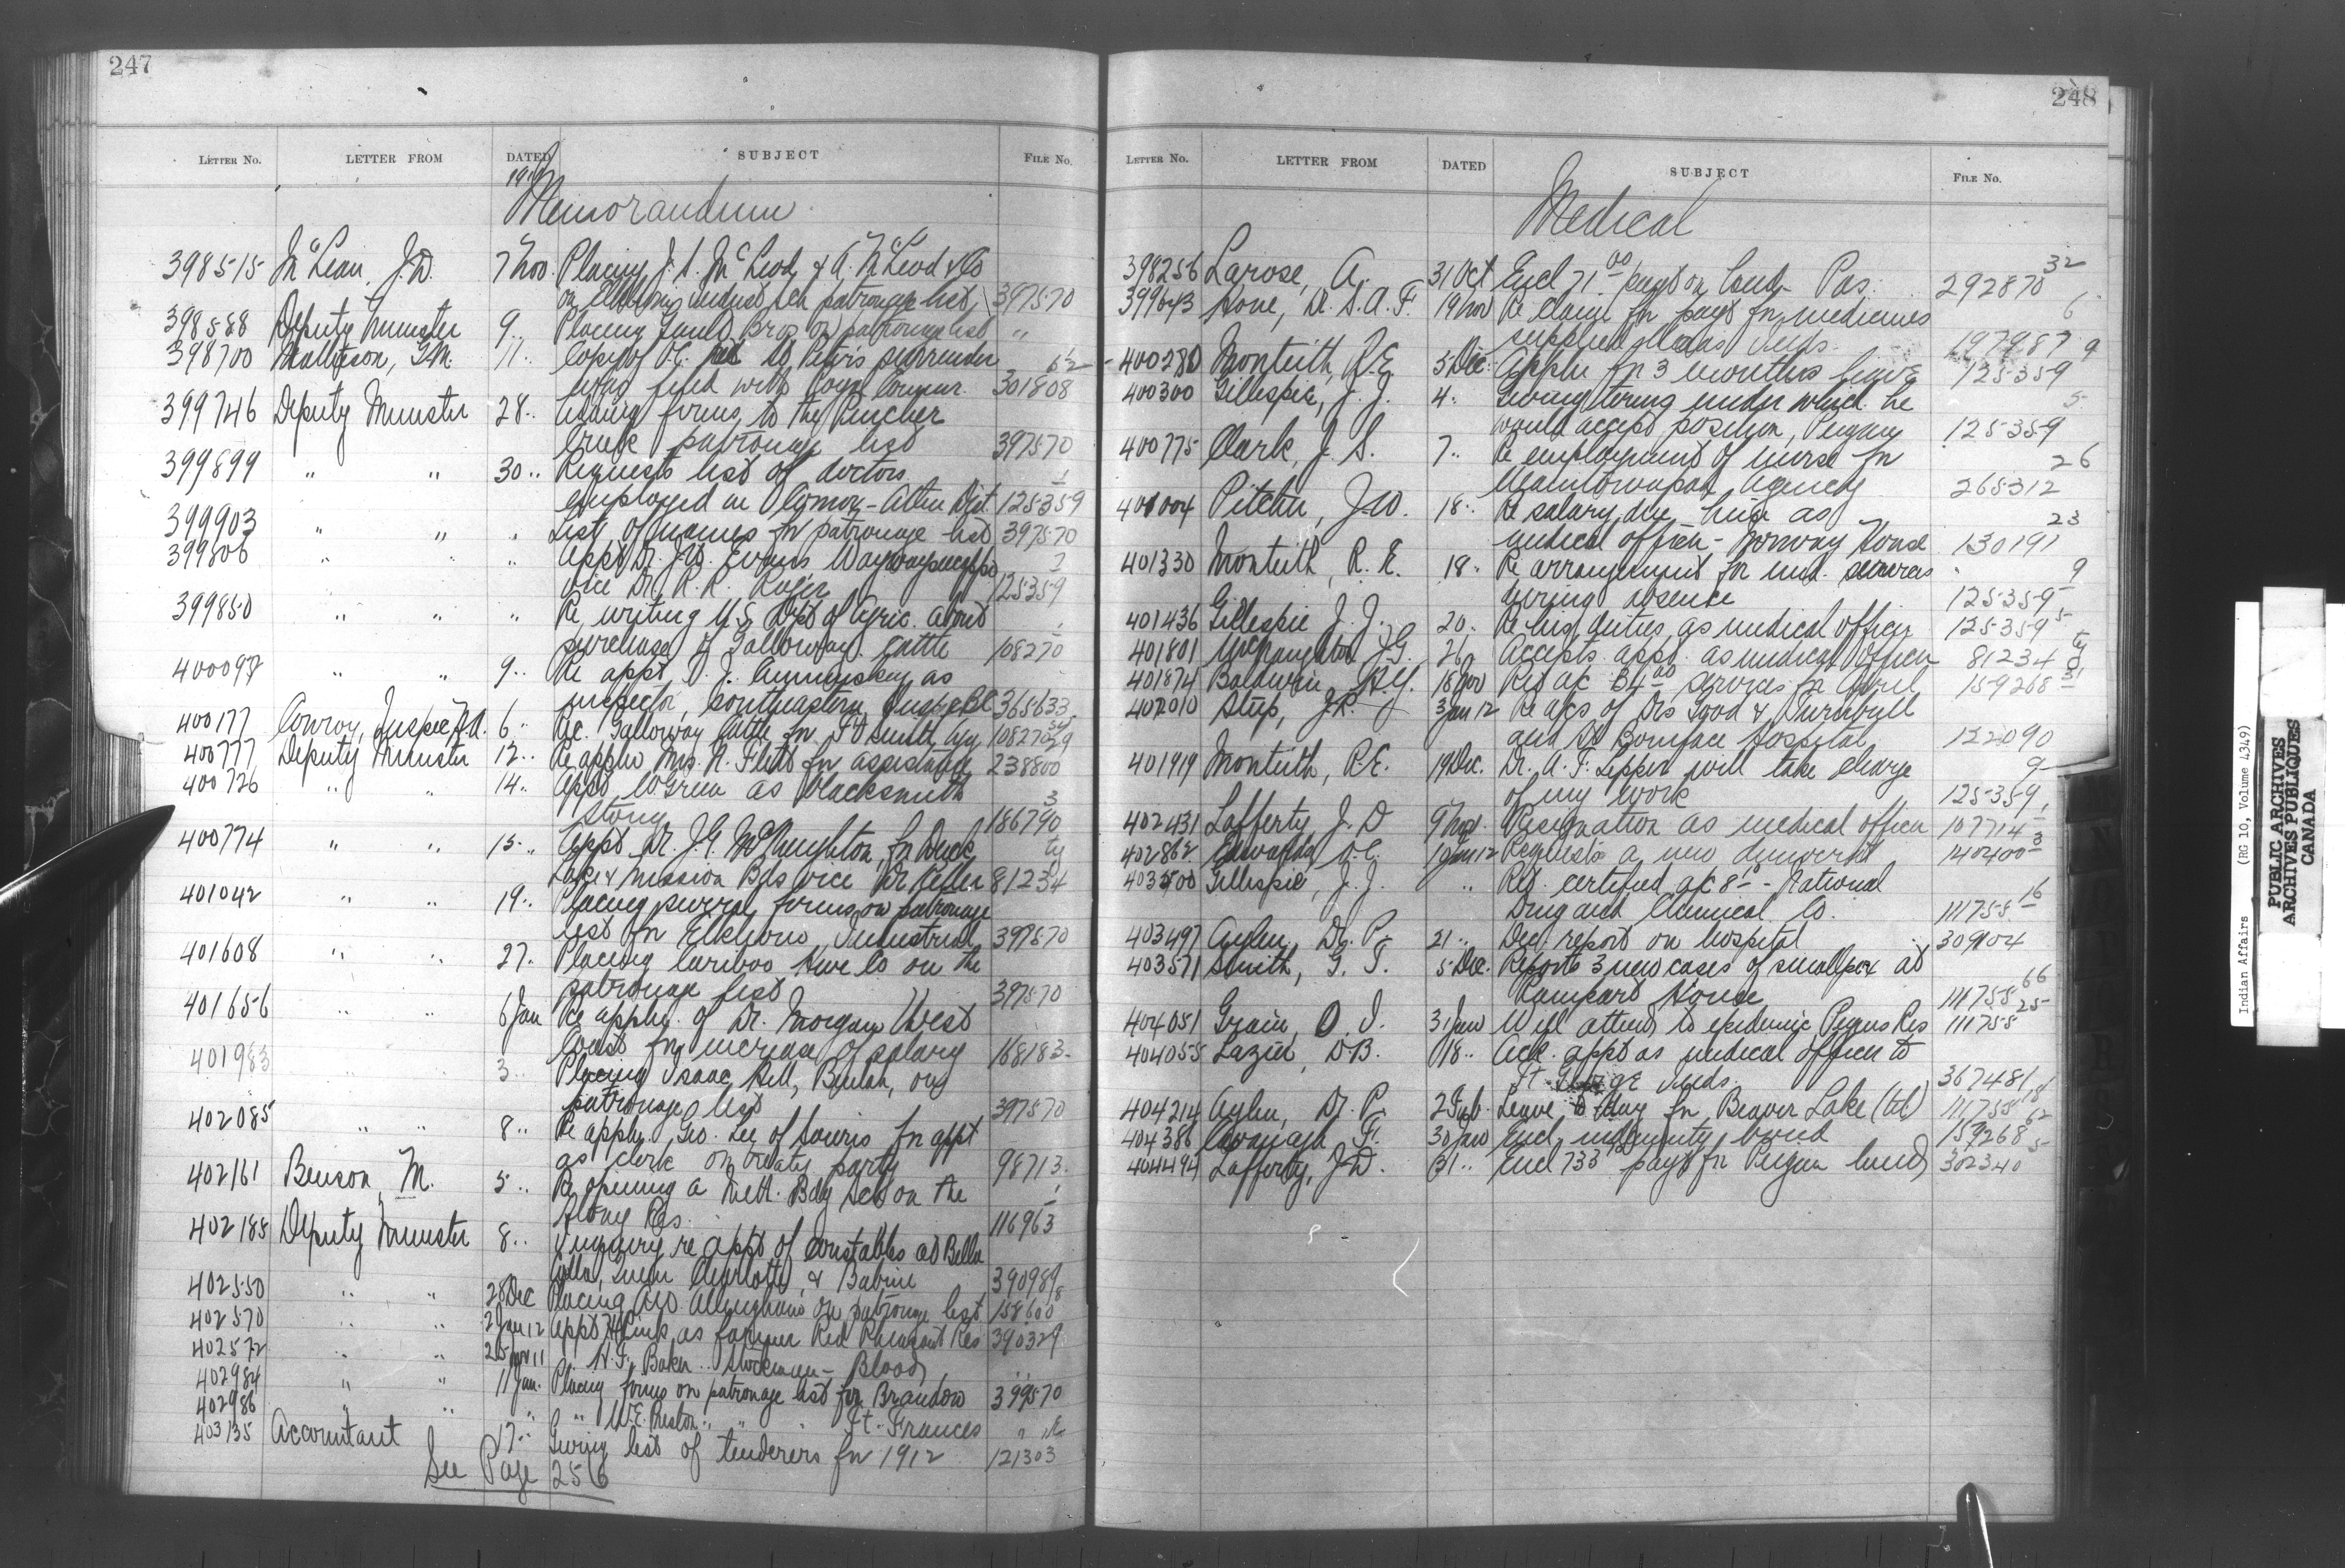 247
LETTER No. LETTER FROM DATED SUBJECT FILE No.
Memorandum
398515 McLean, J.D. 7 Nov. Placing J. S. McLeod & A. McLeod & Co
on Elkhorn indust sch patronage list 397570
398588 Deputy Minister 9 " Placing Bros on patronage list "
398700 Matheson, G.M. 11 " Copy of O.C. St Peters surrender 62
was filed with Commr. 301808
399746 Deputy Minister 28 " Adding firms to the Pincher
Creek patronage list 397570
399899 " " 30 " Requests list of doctors 1
employed in Comox-Atlin Dist. 125359
399903 " " " List of names for patronage list 397570
399806 " " " Appt Dr. J.W. Evans Waywayseecappo 2
vice Dr. R.R. 125359
399850 " " " Re writing U.S. Dept of Agric. about 1
purchase of Galloway cattle 108270
400097 " " 9 " Re appt. J. Cummiskey as
inspector, southeastern Insp. BC 365633
400177 Conroy, Inspec H.A. 6 " Re. Galloway Cattle for Ft Smith Agy 108270
400777 Deputy Minister 12 " Re appln Mrs. N. Flett for assistance 238800
400726 " " 14 " Appt. W Green as blacksmith 3
Stony 186790
400774 " " 15 " Appt. Dr. J.G. McNaughton, for Duck
Lake & Mission Bds vice Dr 81234
401042 " " 19 " Placing firms on patronage
list for Elkhorn Industrial 397570
401608 " " 27 " Placing Cariboo Co on the
patronage list 397570
401656 " " 6 Jan Re appln. of Dr. Morgan West
Coast for increase of salary 168183
401983 " " 3 " Placing Isaac Bell, Beulah, on
patronage list 397570
402085 " " 8 " Re appln. Geo. Lee of Souris for appt
as clerk on treaty party 98713
402161 Benson, M. 5 " Re opening a Meth. Bdg Sch on the 1
Stony Res. 116963
402188 Deputy Minister 8 " Inquiry re appt of constables at Bella
Coola, Queen Charlotte, & Babine 390989
402550 " " 28 Dec Placing on patronage list 158600
402570 " " 2 Jan 12 Appt as farmer Red Pheasant Res 390329
402572 " " 25 Nov 11 " N.F. Baker " Stockman - Blood "
402984 " " 11 Jan. Placing firms on patronage list for Brandon 399570
402986 " " " " W.E. Preston " " " Ft. Frances "
403135 Accountant 17 " Giving list of tenderers for 1912 121303
See Page 256
248
LETTER No. LETTER FROM DATED SUBJECT FILE No.
Medical
398256 Larose, A. 31 Oct Encl 71 00 payt on Pas. 292870 32
399643 Hone, Dr. S.A.F. 19 Nov Re claim for payt for medicines 6
supplied Inds. 197987
400280 Monteith, R.E. 5 Dec. Appln for 3 months leave 125359 9
400300 Gillespie, J.J. 4 " Giving terms under which he 5
would accept position, Peigan 125359
400775 Clark, J.S. 7 " Re employment of nurse for 26
Manitowapah Agency 265312
401004 Pitcher, J.W. 18 " Re salary due him as 23
medical officer - Norway House 130191
401330 Monteith, R.E. 18 " Re arrangement for med. services 9
during absence 125359
401436 Gillespie J.J. 20 " Re his duties as medical officer 125359 5
401801 McNaughton J.G. 26 " Accepts appt. as medical officer 81234
401874 Baldwin, 18 Nov Ret ac services for April 159268 31
402010 Steep, J.R. 3 Jan 12 Re a/cs of Drs Good & Turnbull
and St Boniface Hospital 122090
401919 Monteith, R.E. 19 Dec. Dr. A.F. Lepper will take charge 9
of my work 125359
402431 Lafferty J.D 9 Nov. Resignation as medical officer 107714
402862 Edwards 10 Jan 12 Requests a new 140400 3
403400 Gillespie, J.J. " Ret. certified a/c 8 10 - National 16
Drug and Chemical Co. 111755
403497 Aylen, Dr. P. 21 " Dec. report on hospital 309104
403571 Smith, G.T. 5 Dec. Reports 3 new cases of smallpox at 66
Rampart House 111755
404051 Grain, O.I. 31 Jan Will attend to epidemic Peguis Res 111755 25
404055 Lazier, D.B. 18 " Ack. appt as medical officer to
Ft. George Inds. 367481
404214 Aylen, Dr. P. 2 Feb. Leave to day for Beaver Lake (tel) 111755 18
404386 Cavanagh F. 30 Jan Encl. indemnity bond 159268 62
404494 Lafferty, J.D. 31 " Encl 733 payt for Peigan 302340 5
Indian Affairs (RG 10, Volume 4349)
PUBLIC ARCHIVES
ARCHIVES PUBLIQUES
CANADA